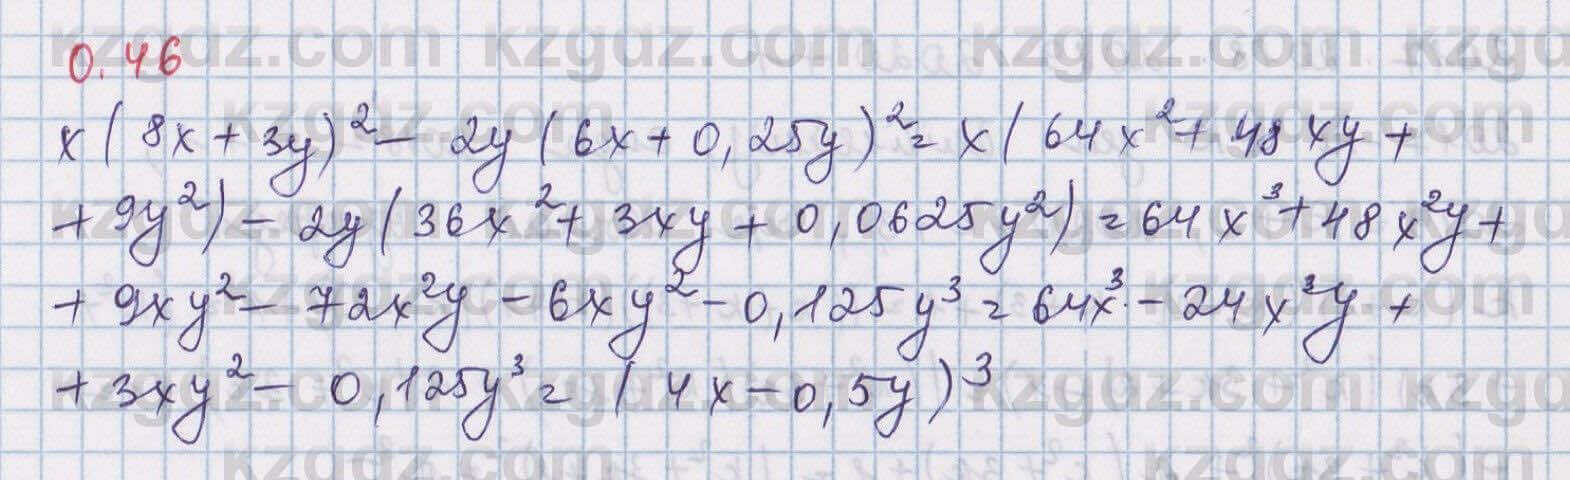 0.46
x(8x+3y)²-2y(6x+0,25y)²=x(64x²+48xy+
+9y²)-2y(36x²+3xy+0,0625y²)=64x³+48x²y+
+9xy²-72x²y-6xy²-0,125y³=64x³-24x³y+
+3xy²-0,125y³=(4x-0,5y)³
kzgdz.com kzgdz.com kzgdz.com kzgdz.com